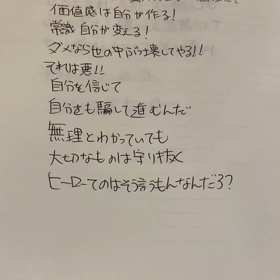 価値感は自分が作る!
常識 自分が変える!
ダメなら世の中ぶち壊してやる!!
それは悪!!
自分を信じて
自分をも騙して進むんだ
無理とわかっていても
大切なものは守りぬく
ヒーローてのはそう言うもんなんだろ?